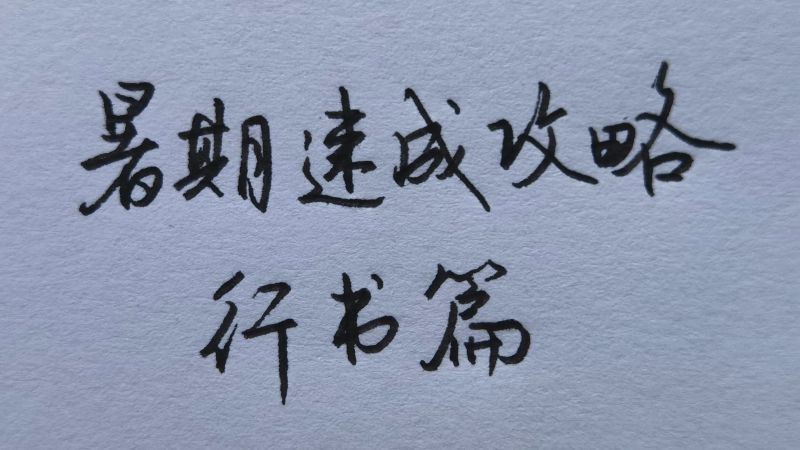 暑期速成攻略
行书篇